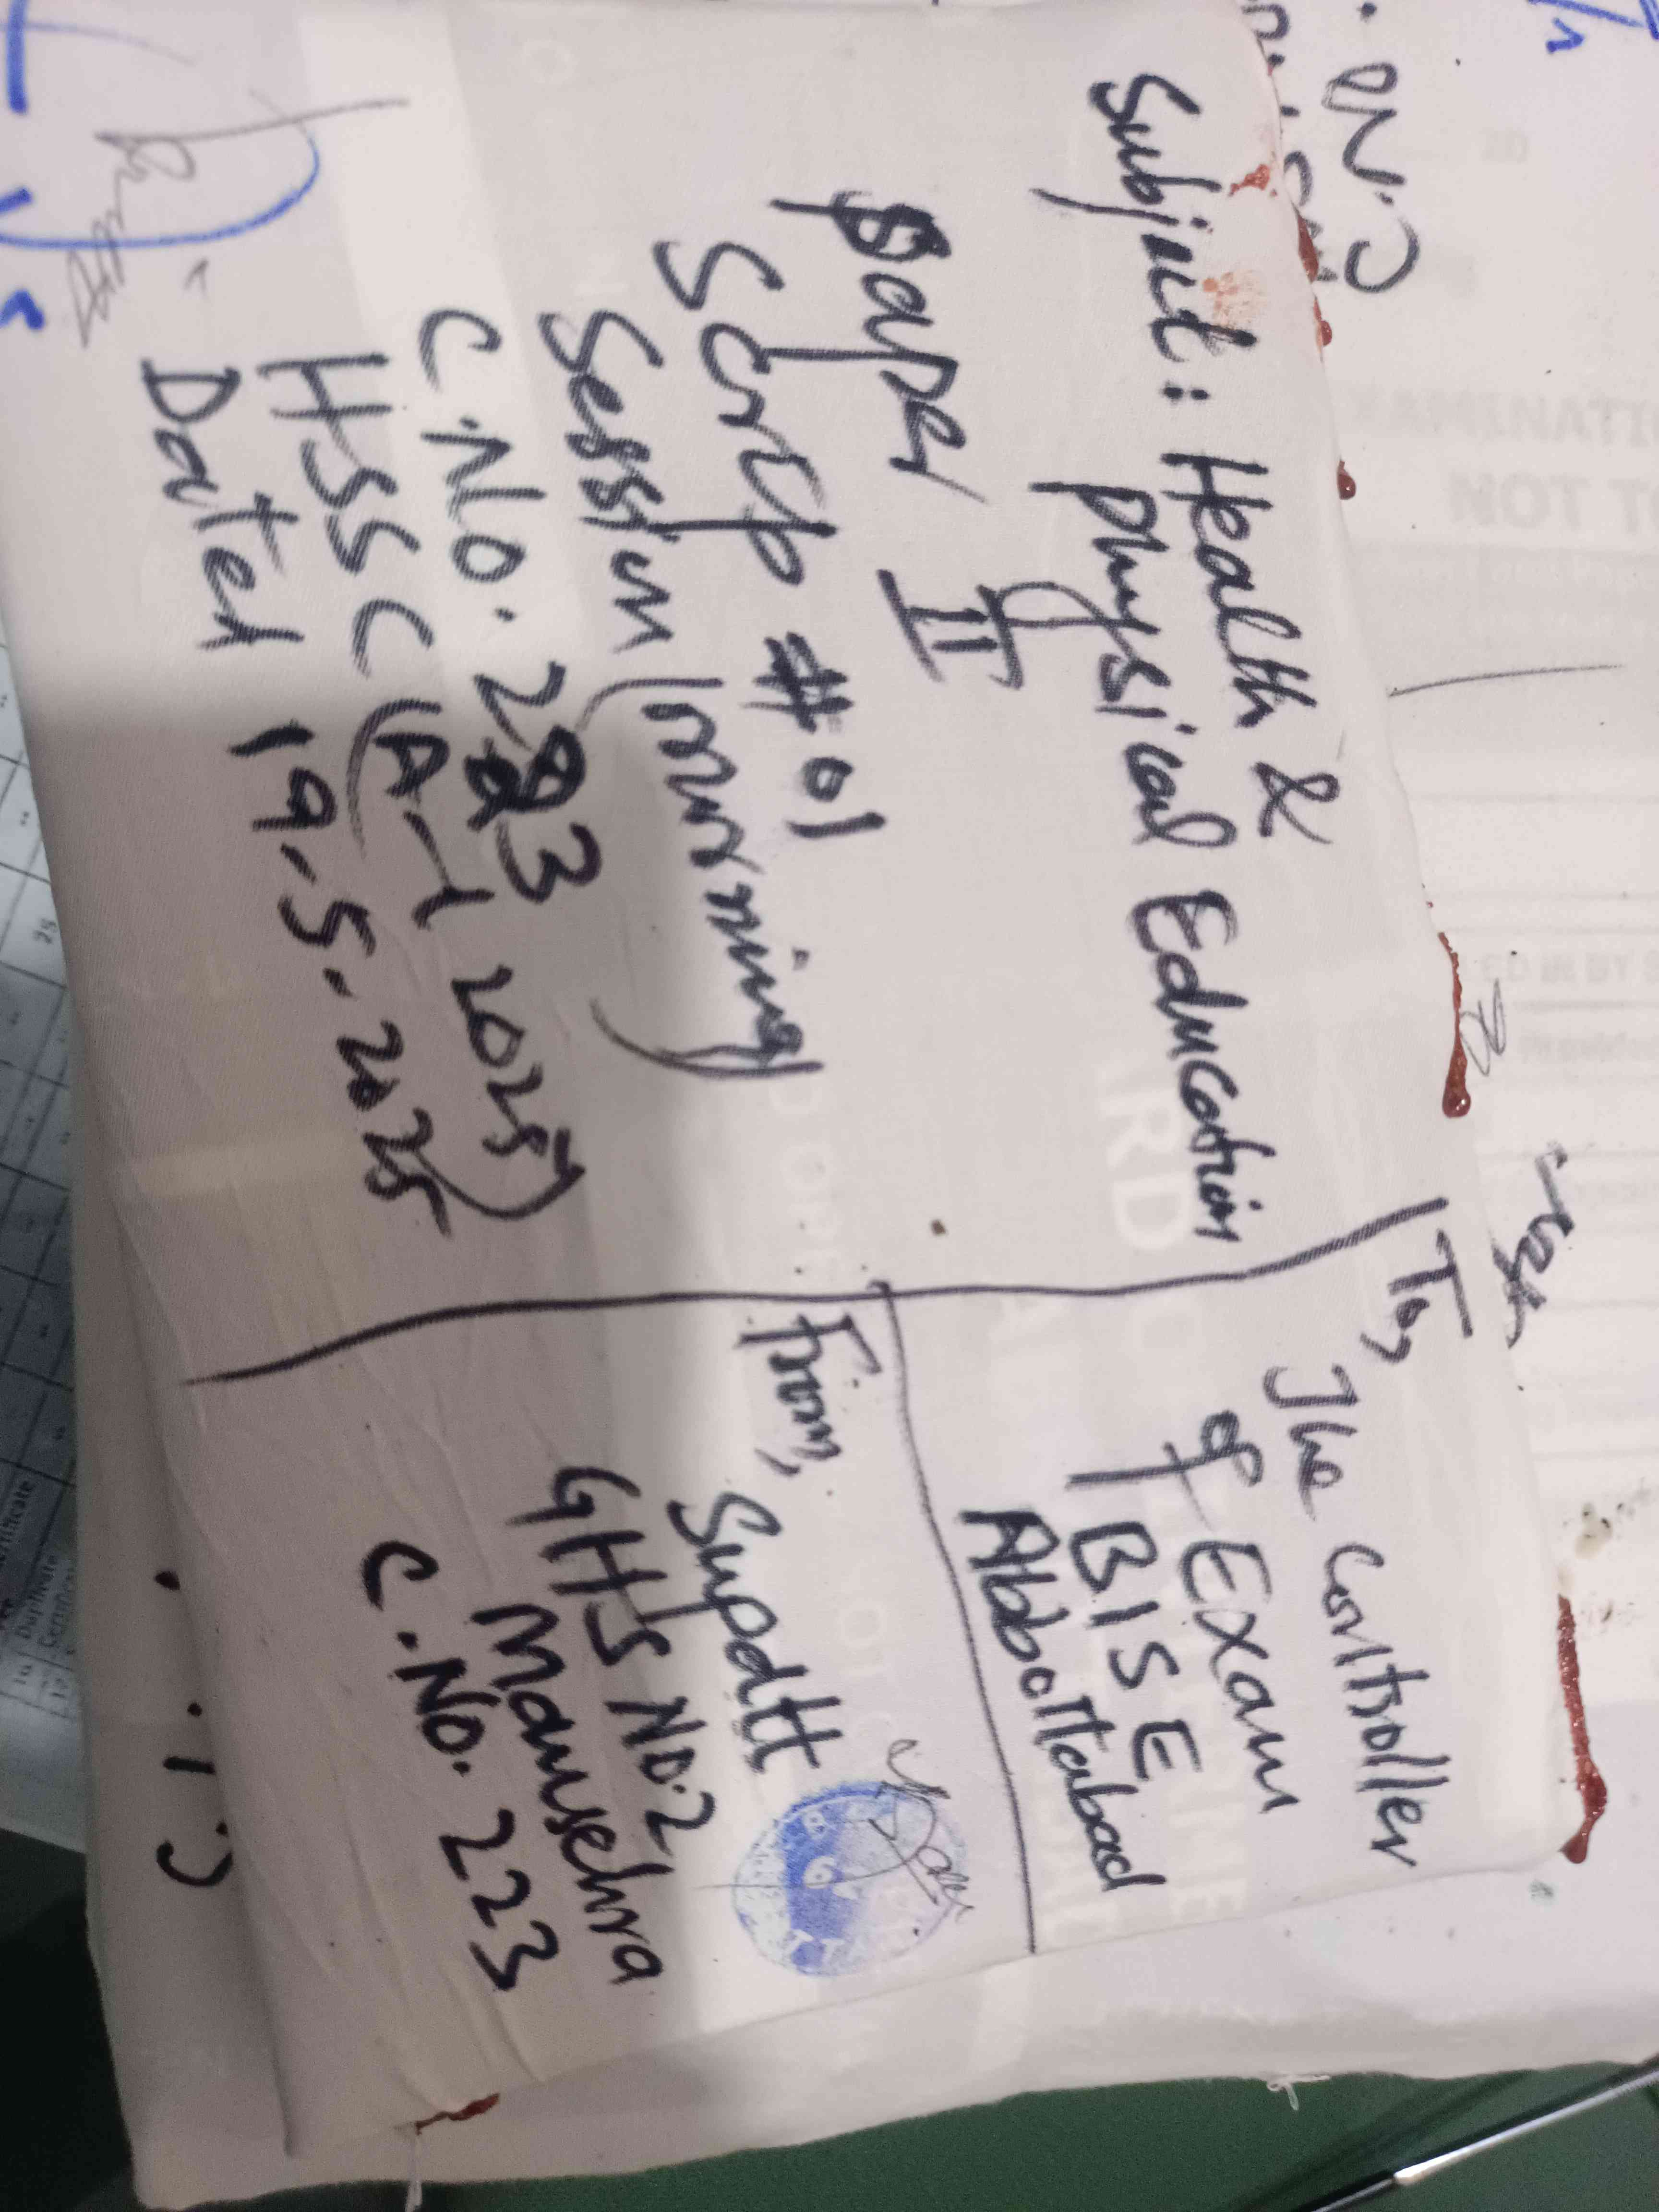 Subject: Health &
Physical Education
Paper II
Scrip # 01
Session (Morning)
C.No. 223
HSSC (A-I 2025)
Dated 19-5-2025
To,
The Controller
of Exam
BISE
Abbottabad
From,
Supdtt
GHS No.2
Mansehra
C.No. 223
C.No.
NOT